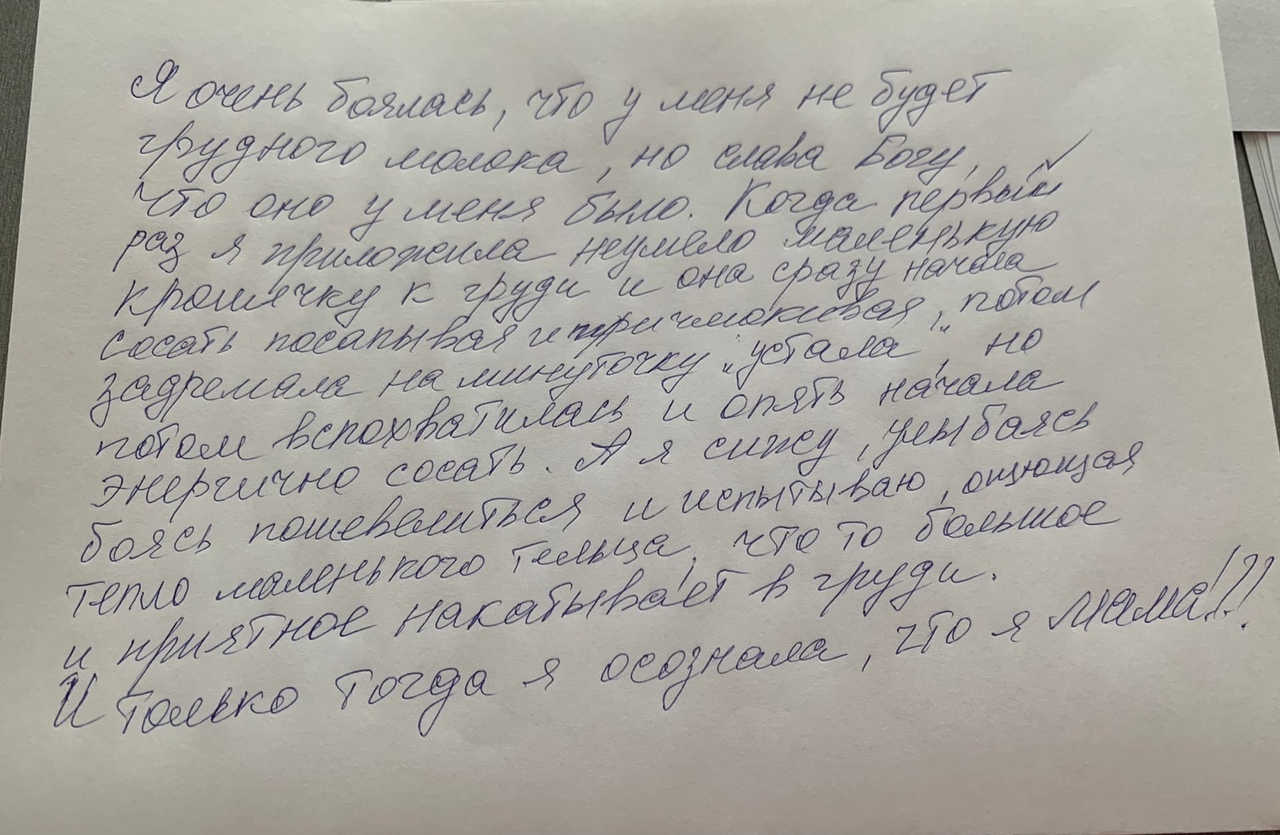 Я очень боялась, что у меня не будет
грудного молока, но слава Богу,
что оно у меня было. Когда первый
раз я приложила неумело маленькую
крошечку к груди и она сразу начала
сосать посапывая и причмокивая, потом
задремала на минуточку „устала", но
потом вспохватилась и опять начала
энергично сосать. А я сижу, улыбаясь
боясь пошевелиться и испытываю, ощющая
тепло маленького тельца, что то большое
и приятное накатывает в груди.
И только тогда я осознала, что я мама!??